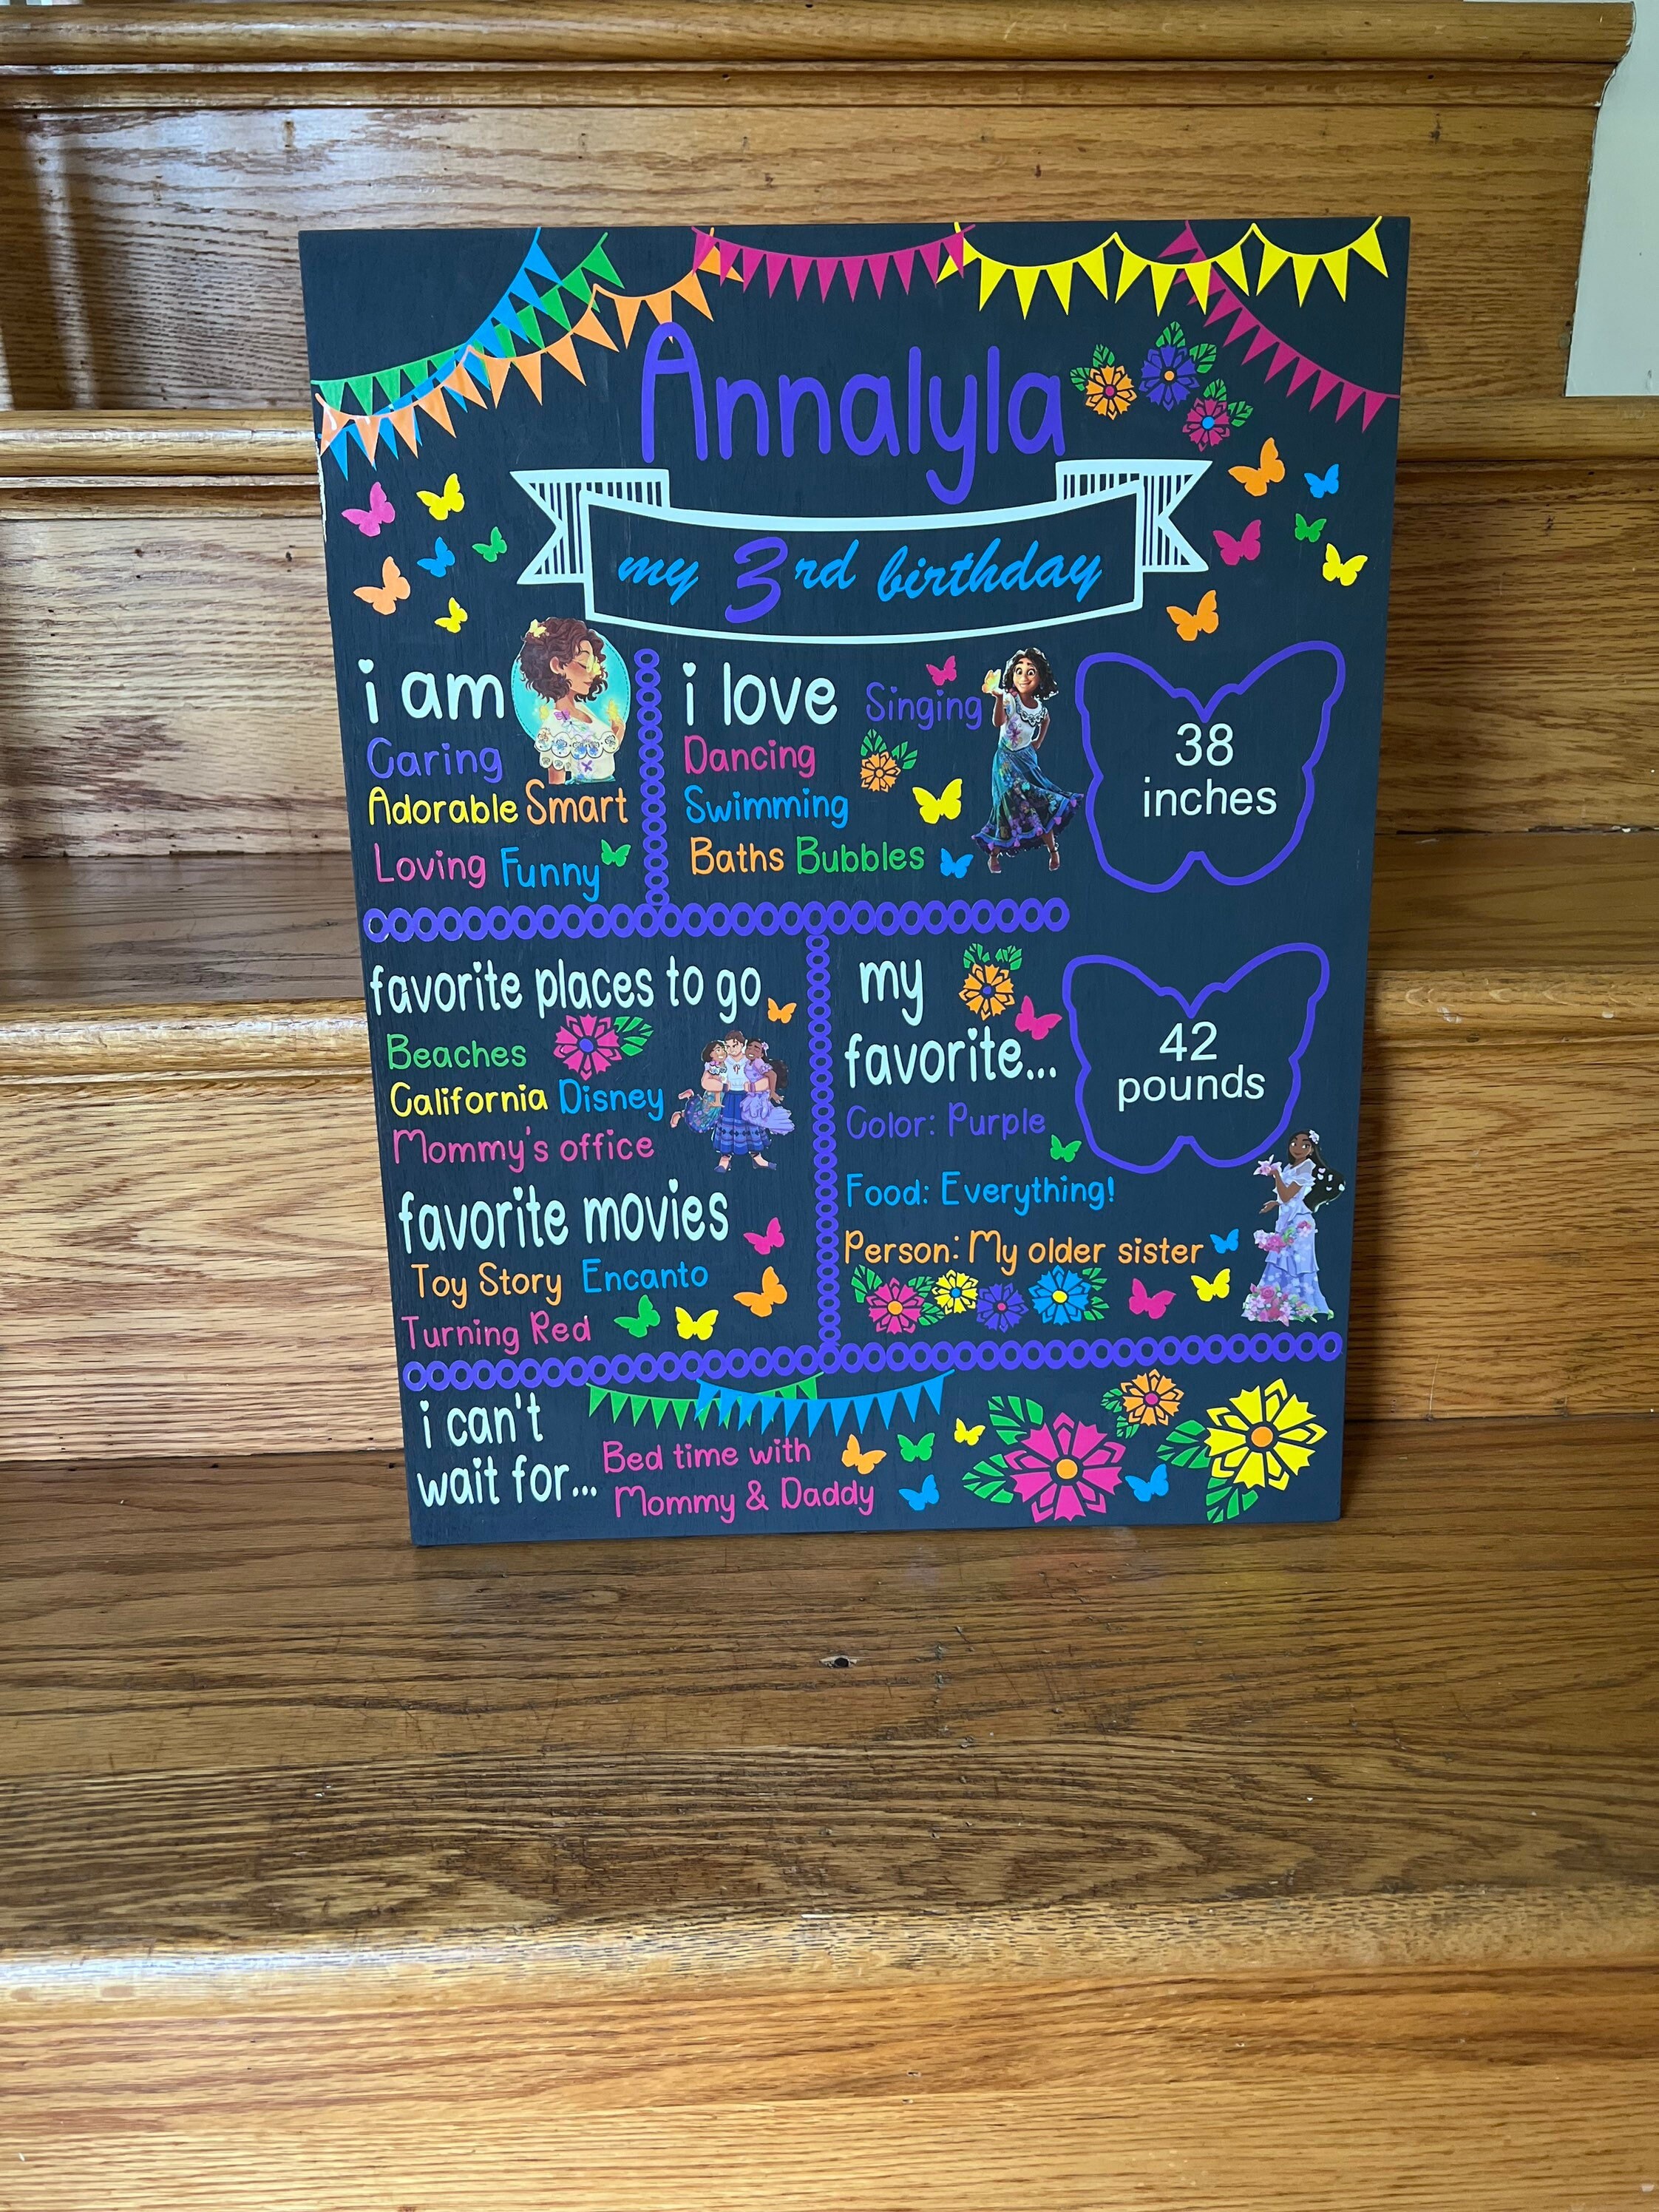 Annalyla
my 3rd birthday
i am
Caring
Adorable Smart
Loving Funny
i love Singing
Dancing
Swimming
Baths Bubbles
38
inches
favorite places to go
Beaches
California Disney
Mommy's office
favorite movies
Toy Story Encanto
Turning Red
my
favorite...
Color: Purple
Food: Everything!
Person: My older sister
42
pounds
i can't
wait for...
Bed time with
Mommy & Daddy